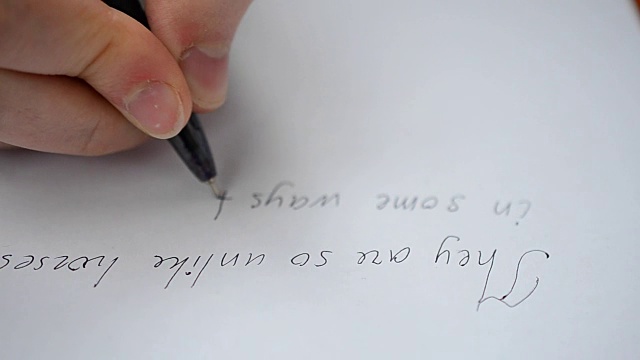 They are so unlike horses
in some ways t